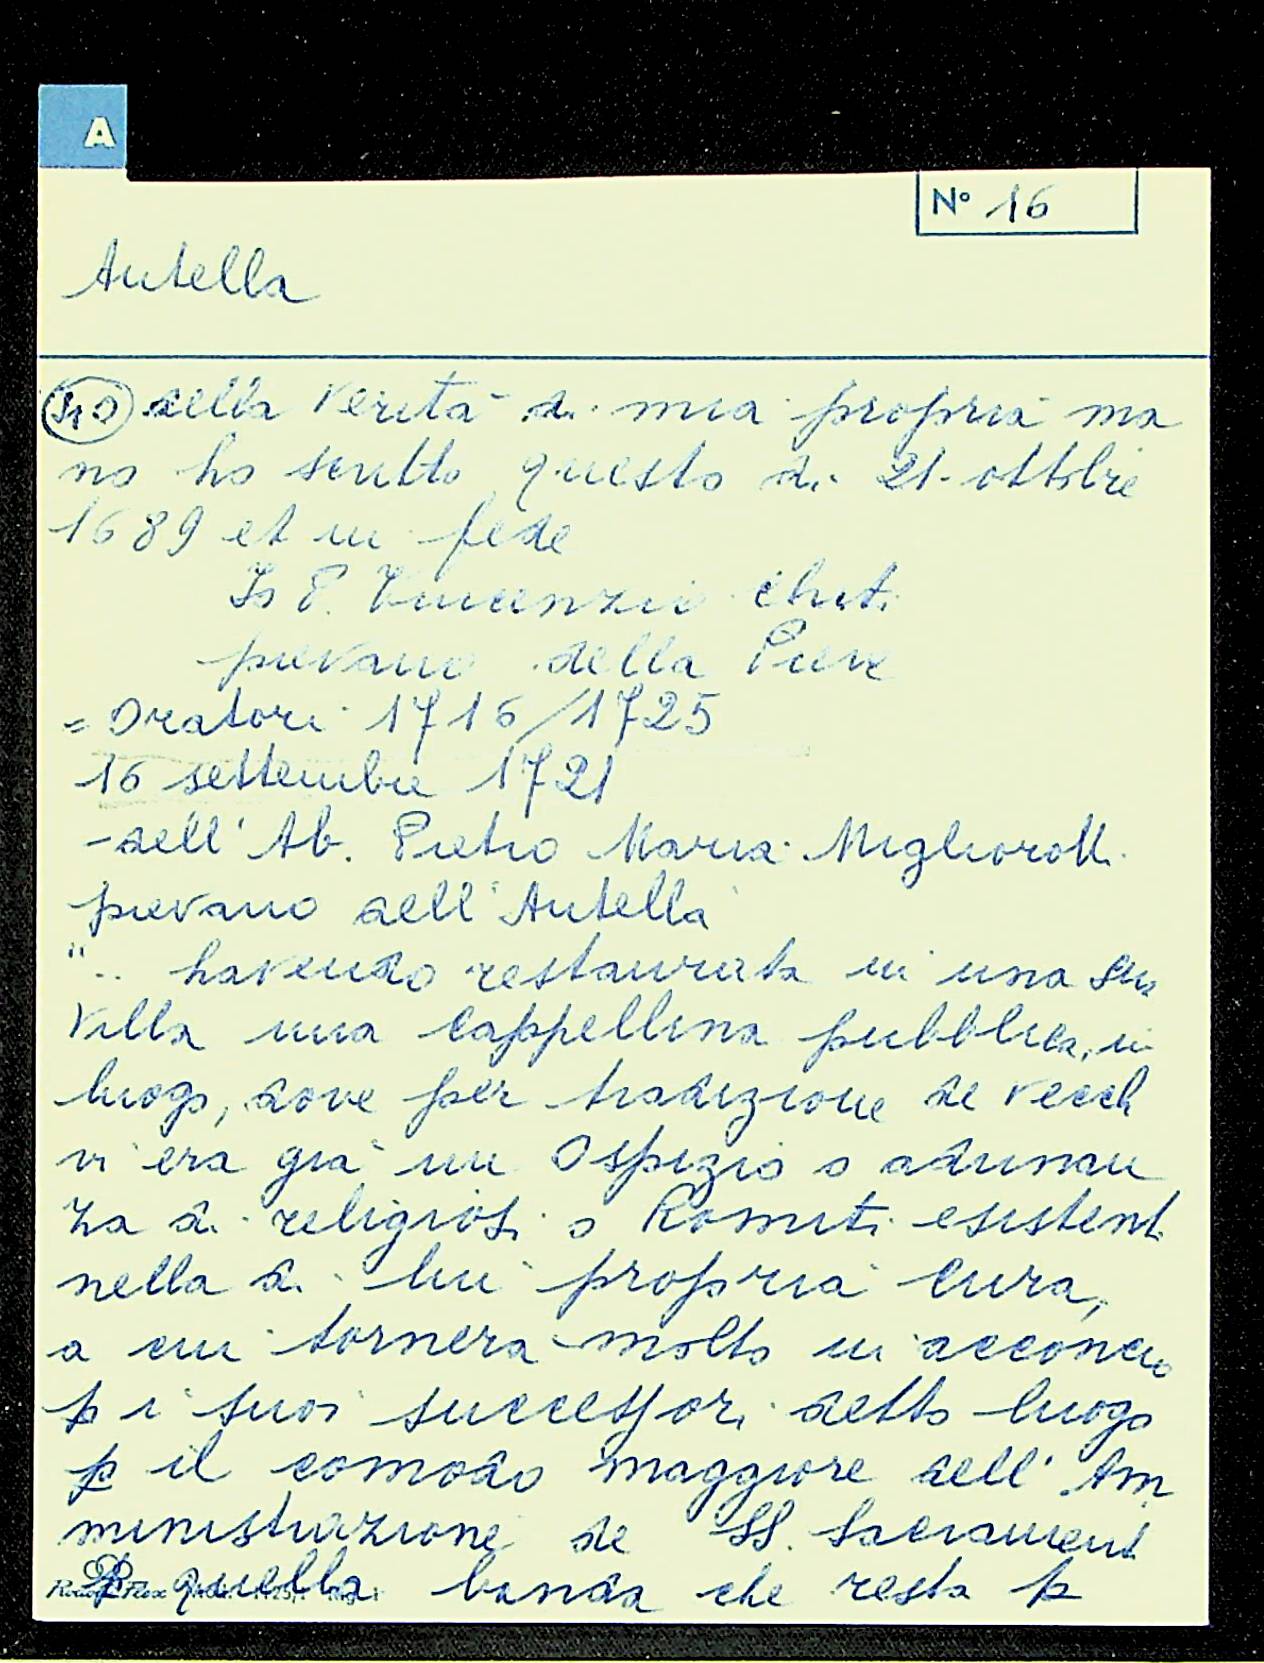 A
N° 16
Antella
della verità di mia propria ma
no ho scritto questo dì 21 ottobre
1689 et in fede
Io P. Vincenzio Chiti
pievano della Pieve
= Oratori 1716/1725
16 settembre 1721
- dell' Ab. Pietro Maria Migliorotti
pievano dell'Antella
".. havendo restaurata in una sua
Villa una cappellina pubblica, in
luogo, dove per tradizione de vecch
vi era già un Ospizio o adunan
za di religiosi o Romiti esistenti
nella di lui propria cura,
a cui tornerà molto in acconcio
p i suoi successori detto luogo
p il comodo maggiore dell' Am
ministrazione de SS. Sacrament
p quella banda che resta p